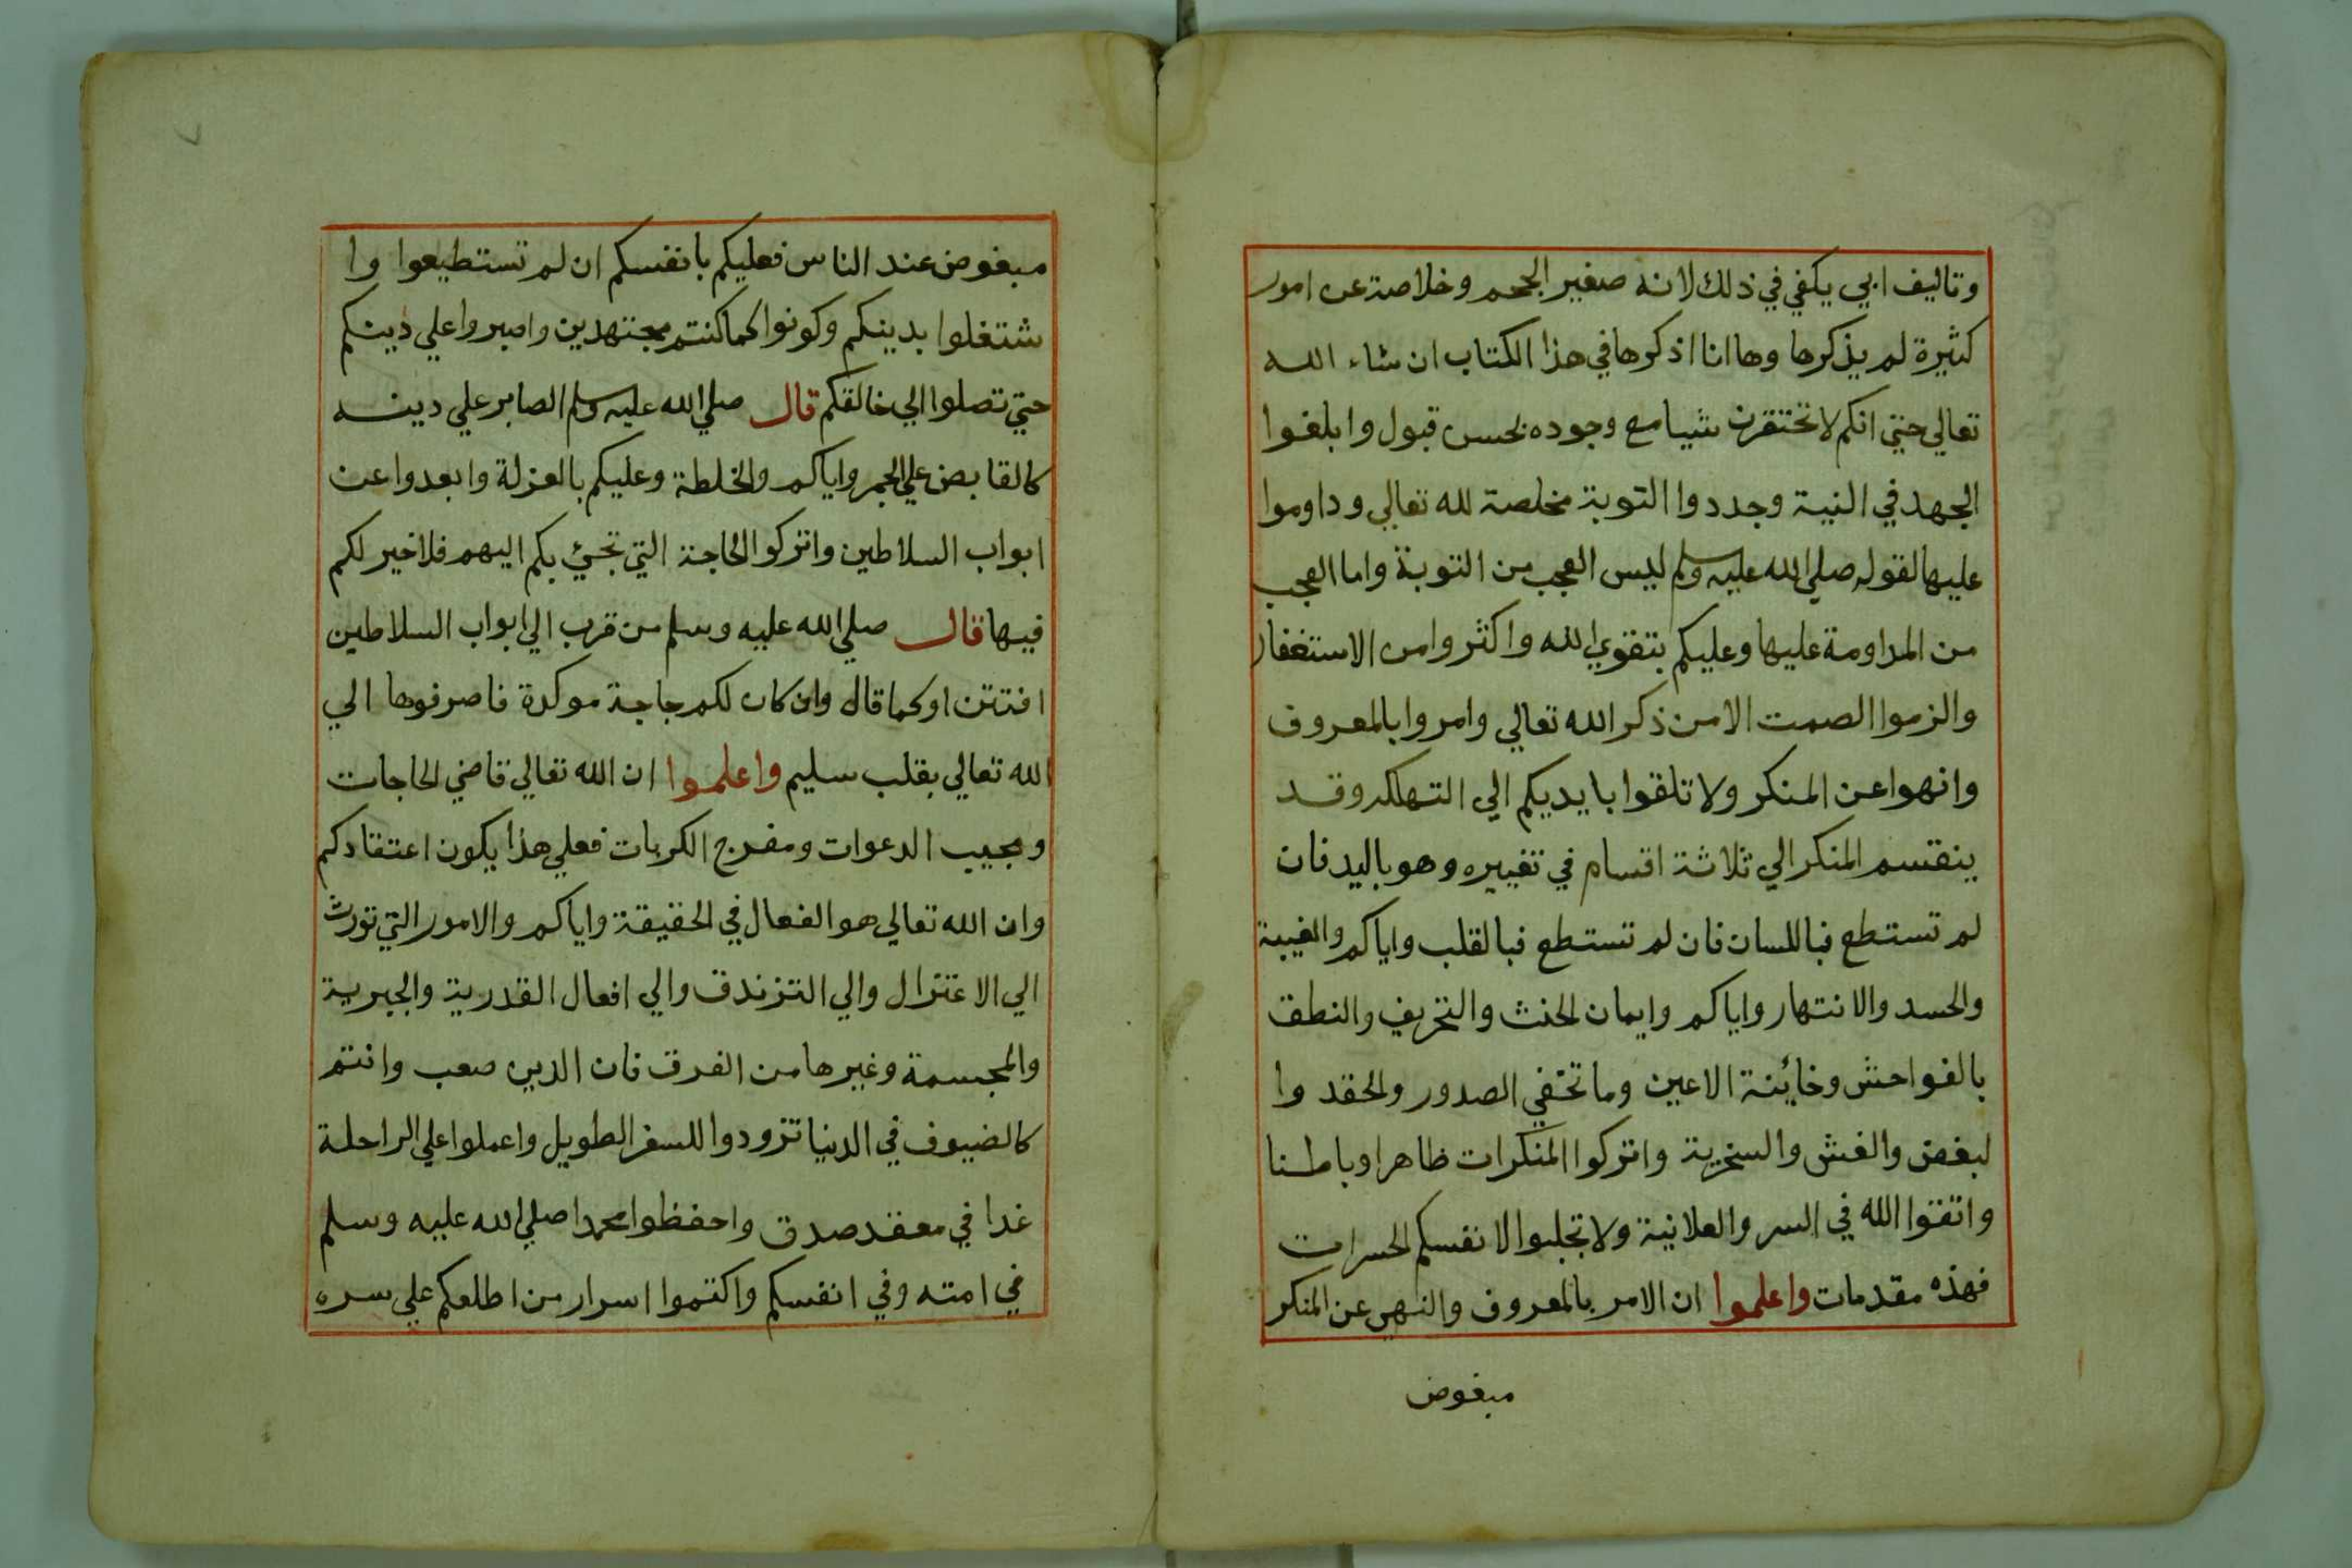 وتاليف ابي يكفي في ذلك لانه صغير الحجم وخلاصة عن امور
كثيرة لم يذكرها وها انا اذكرها في هذا الكتاب ان شاء الله
تعالي حتي انكم لا تحتقرن شيا مع وجوده بحسن قبول وابلغوا
الجهد في النية وجددوا التوبة مخلصة لله تعالي وداوموا
عليها لقوله صلي الله عليه وسلم ليس العجب من التوبة واما العجب
من المداومة عليها وعليكم بتقوي الله واكثروا من الاستغفار
والزموا الصمت الا من ذكر الله تعالي وامروا بالمعروف
وانهوا عن المنكر ولا تلقوا بايديكم الي التهلكه وقد
ينقسم المنكر الي ثلاثة اقسام في تغييره وهو باليد فان
لم تستطع فباللسان فان لم تستطع فبالقلب واياكم والغيبة
والحسد والانتهار واياكم وايمان الحنث والتحريف والنطق
بالفواحش وخائنة الاعين وما تخفي الصدور والحقد وا
لبغض والغش والسخرية واتركوا المنكرات ظاهرا وباطنا
واتقوا الله في السر والعلانية ولا تجلبوا لانفسكم الحسرات
فهذه مقدمات واعلموا ان الامر بالمعروف والنهي عن المنكر
مبغوض
مبغوض عند الناس فعليكم بانفسكم ان لم تستطيعوا وا
شتغلوا بدينكم وكونوا كما كنتم مجتهدين واصبروا علي دينكم
حتي تصلوا الي خالقكم قال صلي الله عليه وسلم الصابر علي دينه
كالقابض علي الجمر واياكم والخلطة وعليكم بالعزلة وابعدوا عن
ابواب السلاطين واتركوا الحاجة التي تجيء بكم اليهم فلا خير لكم
فيها قال صلي الله عليه وسلم من قرب الي ابواب السلاطين
افتتن او كما قال وان كان لكم حاجة موكدة فاصرفوها الي
الله تعالي بقلب سليم واعلموا ان الله تعالي قاضي الحاجات
ومجيب الدعوات ومفرج الكربات فعلي هذا يكون اعتقادكم
وان الله تعالي هو الفعال في الحقيقة واياكم والامور التي تورث
الي الاعتزال والي التزندق والي افعال القدرية والجبرية
والمجسمة وغيرها من الفرق فان الدين صعب وانتم
كالضيوف في الدنيا تزودوا للسفر الطويل واعملوا علي الراحلة
غدا في معقد صدق واحفظوا محمدا صلي الله عليه وسلم
في امته وفي انفسكم واكتموا اسرار من اطلعكم علي سره